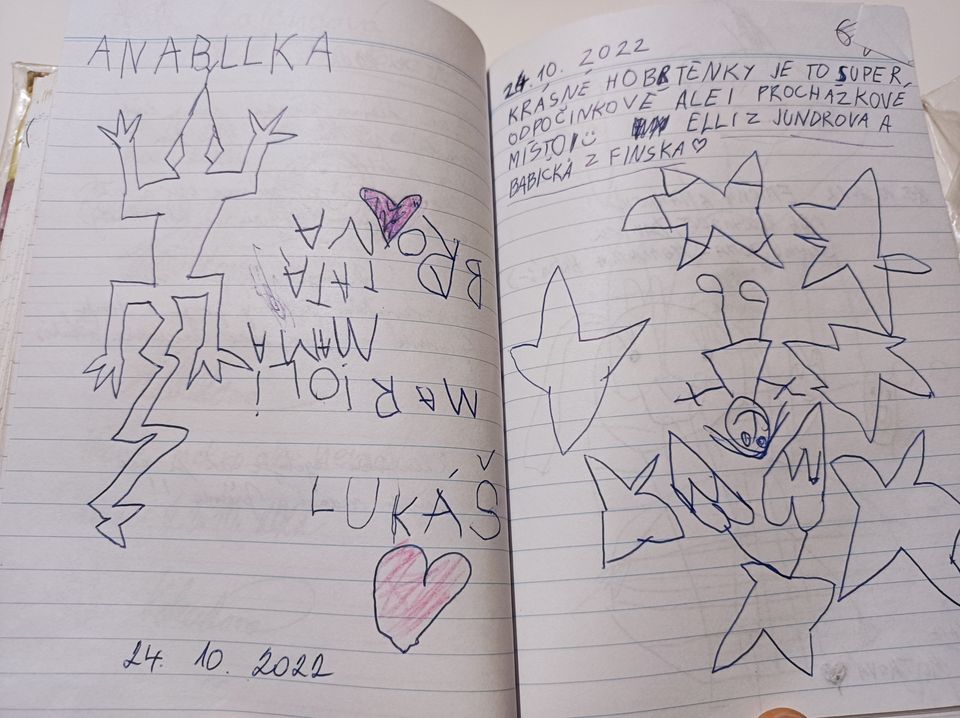 ANABLLKA
BROŇA
TATA
MAMA
LUKÁŠ
24. 10. 2022
24.10. 2022
KRÁSNÉ HOBRTENKY JE TO SUPER
ODPOČINKOVĚ ALE I PROCHÁZKOVÉ
MÍSTO! ELLI Z JUNDROVA A
BABIČKA Z FINSKA